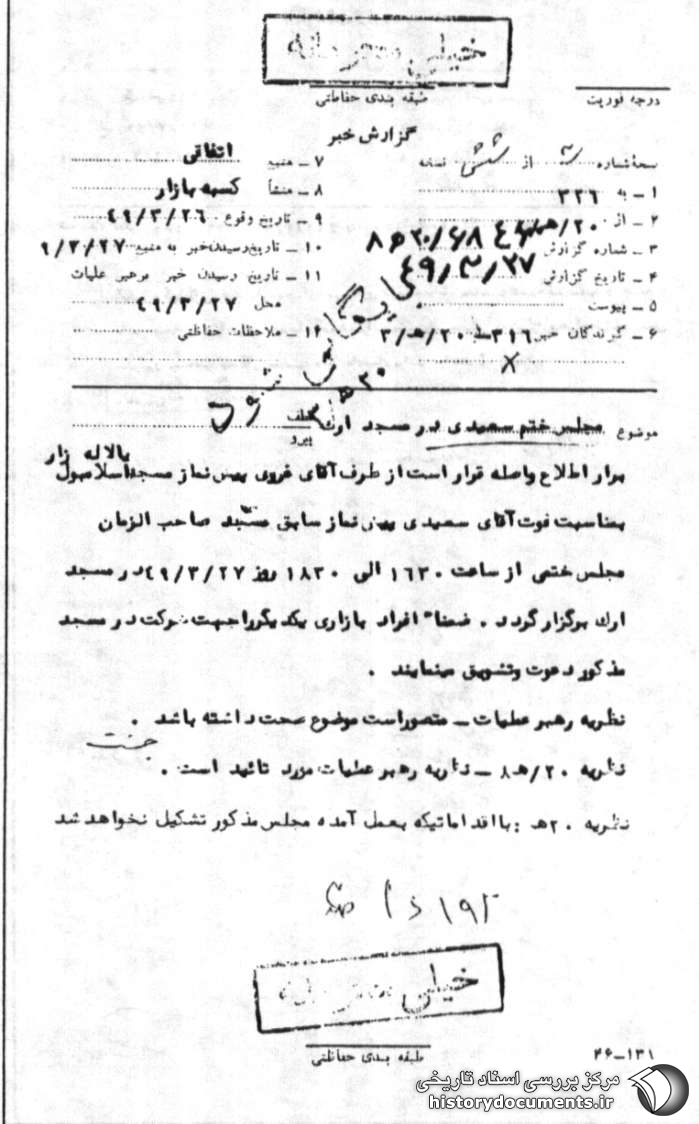 خیلی محرمانه
طبقه بندی حفاظتی
درجه فوریت
گزارش خبر
نسخهٔ شماره ۳ از شش نسخه
۱ – به ۳۲۶
۲ – از ۲۰/هـ
۳ – شماره گزارش
۴ – تاریخ گزارش ۴۹/۳/۲۷
۵ – پیوست
۶ – گیرندگان خبر ۳۱۶ – ۲۰/هـ/۳
۷ – منبع اتفاقی
۸ – منشأ کسبه بازار
۹ – تاریخ وقوع ۴۹/۳/۲۶
۱۰ – تاریخ رسیدن خبر به منبع ۹/۳/۲۷
۱۱ – تاریخ رسیدن خبر برهبر عملیات
محل ۴۹/۳/۲۷
۱۲ – ملاحظات حفاظتی
بایگانی شود
۲۰ هـ
موضوع مجلس ختم سعیدی در مسجد ارک
عطف
پیرو
برابر اطلاع واصله قرار است از طرف آقای غروی پیش نماز مسجد اسلامبول
بالاله زار
بمناسبت فوت آقای سعیدی پیش نماز سابق مسجد صاحب الزمان
مجلس ختمی از ساعت ۱۶۳۰ الی ۱۸۳۰ روز ۴۹/۳/۲۷ در مسجد
ارک برگزار گردد . ضمنا" افراد بازاری یکدیگر را جهت شرکت در مسجد
مذکور دعوت و تشویق مینمایند .
نظریه رهبر عملیات – متصور است موضوع صحت داشته باشد .
نظریه ۲۰/هـ ۸ – نظریه رهبر عملیات مورد تائید است .
نظریه ۲۰هـ : با اقداماتیکه بعمل آمده مجلس مذکور تشکیل نخواهد شد
خیلی محرمانه
طبقه بندی حفاظتی
۴۶–۱۳۱
مرکز بررسی اسناد تاریخی
historydocuments.ir